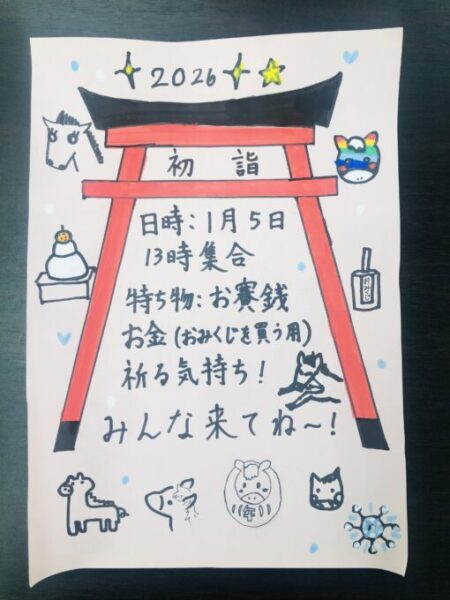 2026
初詣
日時:1月5日
13時集合
持ち物:お賽銭
お金(おみくじを買う用)
祈る気持ち!
みんな来てね〜!
おみくじ